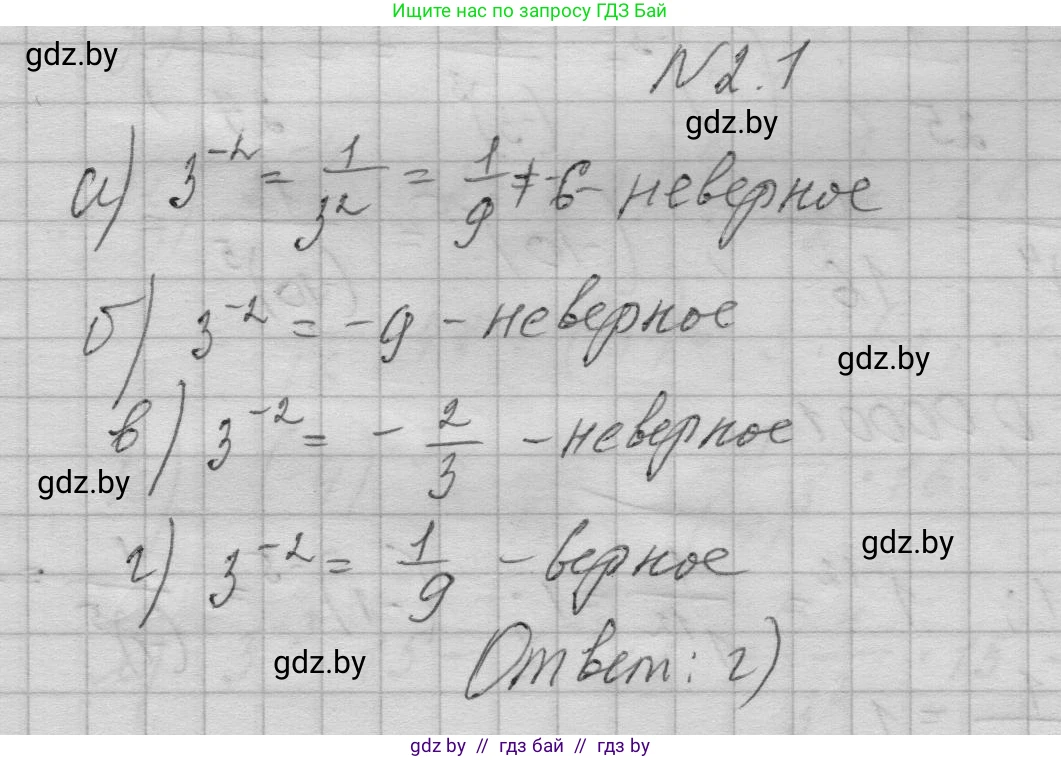 Ищите нас по запросу ГДЗ Бай
gdz.by
№ 2.1
gdz.by
а) 3^{-2} = \frac{1}{3^2} = \frac{1}{9} ≠ -6 - неверное
б) 3^{-2} = -9 - неверное
gdz.by
в) 3^{-2} = -\frac{2}{3} - неверное
gdz.by
г) 3^{-2} = \frac{1}{9} - верное
gdz.by
Ответ: г)
gdz.by
gdz by // гдз бай // гдз by